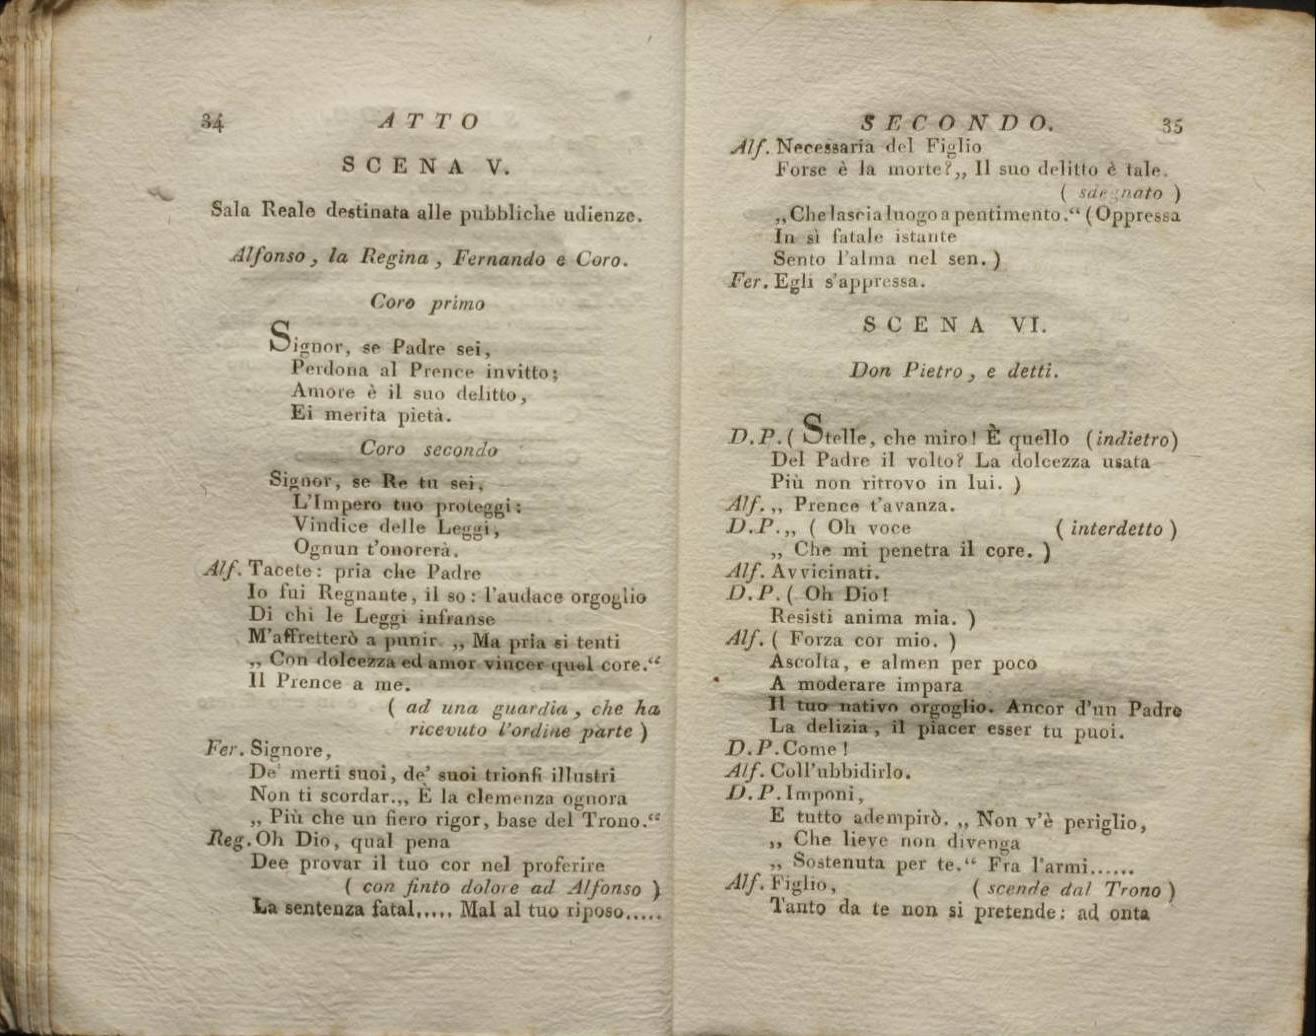 34
ATTO
SCENA V.
Sala Reale destinata alle pubbliche udienze.
Alfonso, la Regina, Fernando e Coro.
Coro primo
Signor, se Padre sei,
Perdona al Prence invitto;
Amore è il suo delitto,
Ei merita pietà.
Coro secondo
Signor, se Re tu sei,
L'Impero tuo proteggi:
Vindice delle Leggi,
Ognun t'onorerà.
Alf. Tacete: pria che Padre
Io fui Regnante, il so: l'audace orgoglio
Di chi le Leggi infranse
M'affretterò a punir. „ Ma pria si tenti
„ Con dolcezza ed amor vincer quel core.“
Il Prence a me.
( ad una guardia, che ha
ricevuto l'ordine parte )
Fer. Signore,
De' merti suoi, de' suoi trionfi illustri
Non ti scordar.„ È la clemenza ognora
„ Più che un fiero rigor, base del Trono.“
Reg. Oh Dio, qual pena
Dee provar il tuo cor nel proferire
( con finto dolore ad Alfonso )
La sentenza fatal..... Mal al tuo riposo.....
SECONDO.
35
Alf. Necessaria del Figlio
Forse è la morte?„ Il suo delitto è tale.
( sdegnato )
„Che lascia luogo a pentimento.“ (Oppressa
In sì fatale istante
Sento l'alma nel sen. )
Fer. Egli s'appressa.
SCENA VI.
Don Pietro, e detti.
D.P. ( Stelle, che miro! È quello (indietro)
Del Padre il volto? La dolcezza usata
Più non ritrovo in lui. )
Alf. „ Prence t'avanza.
D.P. „ ( Oh voce ( interdetto )
„ Che mi penetra il core. )
Alf. Avvicinati.
D.P. ( Oh Dio!
Resisti anima mia. )
Alf. ( Forza cor mio. )
Ascolta, e almen per poco
A moderare impara
Il tuo nativo orgoglio. Ancor d'un Padre
La delizia, il piacer esser tu puoi.
D.P. Come!
Alf. Coll'ubbidirlo.
D.P. Imponi,
E tutto adempirò. „ Non v'è periglio,
„ Che lieve non divenga
„ Sostenuta per te.“ Fra l'armi......
Alf. Figlio, ( scende dal Trono )
Tanto da te non si pretende: ad onta